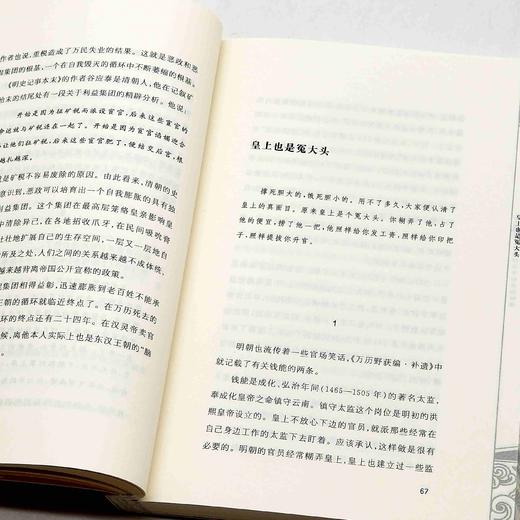 作者也说，重税造成了万民失业的结果。这就是恶政和恶
集团的根基，一个在自我毁灭的循环中不断萎缩的根基。
《明史记事本末》的作者谷应泰是清朝人，在记叙矿
始末的结尾处有一段关于利益集团的精辟分析。他说：
开始是因为征矿税而派设宦官，后来这些宦官的
命运就与矿税连在一起了。开始是因为宦官谄媚迎合
让他们征矿税，后来这些宦官肥了，便结交后宫，根
越扎越深。
是矿税不容易废除的原因。由此看来，清朝的史
意识到，恶政可以培育出一个自我膨胀的具有独
利益集团。这个集团在最高层笼络皇亲影响皇
中清除异己，在各地招收爪牙，在民间吸吮膏
壮壮地扩展自己的生存空间，一层又一层地自
所及之处，人们之间的关系越来越不成体统，
来越背离帝国公开宣称的政策。
集团相得益彰，迅速膨胀到老百姓不能承
王朝的循环就临近终点了。在万历死去的
环的终点还有二十四年。在汉灵帝卖官
候，离他本人实际上也是东汉王朝的“脑
皇上也是冤大头
撑死胆大的，饿死胆小的。用不了多久，大家便认清了
皇上的真面目。原来皇上是个冤大头。你糊弄了他，占
了他的便宜，捞了他一把，他照样给你发工资，照样给你印把
子，照样提拔你升官。
1
明朝也流传着一些官场笑话，《万历野获编·补遗》中
就记载了有关钱能的两条。
钱能是成化、弘治年间（1465—1505 年）的著名太监，
奉成化皇帝之命镇守云南。镇守太监这个岗位是明初的洪
熙皇帝设立的。皇上不放心下边的官员，就派那些经常在
自己身边工作的太监下去盯着。应该承认，这种担心是很有
必要的。明朝的官员经常糊弄皇上，皇上也建立过一些监
67
皇上也是冤大头